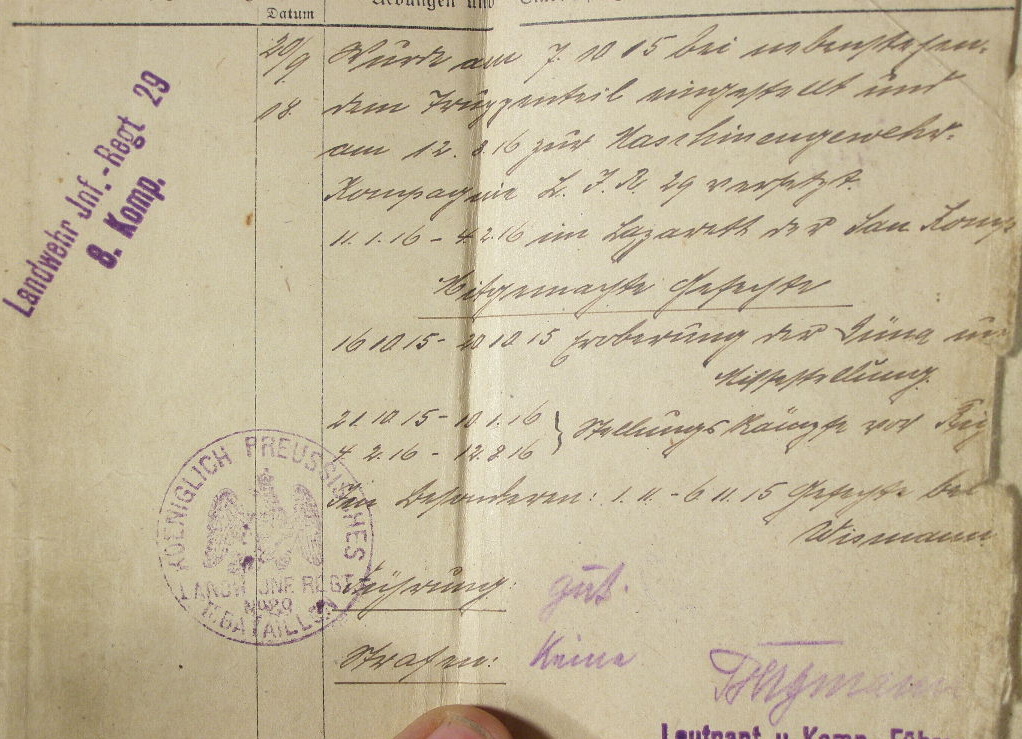 Datum
Uebungen und
Landwehr Inf.-Regt 29
8. Komp.
20/9
18.
Wurde am 7. 10 15 bei nebenstehen-
dem Truppenteil eingestellt und
am 12. 8. 16 zur Maschinengewehr-
Kompagnie L. I. R. 29 versetzt.
11. 1. 16 - 4. 2. 16 im Lazarett der San Komp
Mitgemachte Gefechte
16 10 15 - 20 10 15 Eroberung der Düna
21. 10. 15 - 10. 1. 16
4. 2. 16 - 12. 8 16 } Stellungskämpfe vor Rig
Im Besonderen: 1. 11. - 6 11. 15 Gefechte bei
Wismann
KOENIGLICH PREUSSISCHES
LANDW. INF. REGT
No 29
II. BATAILLON
Führung: gut.
Strafen: Keine
Bergmann
Leutnant u. Komp. Führer